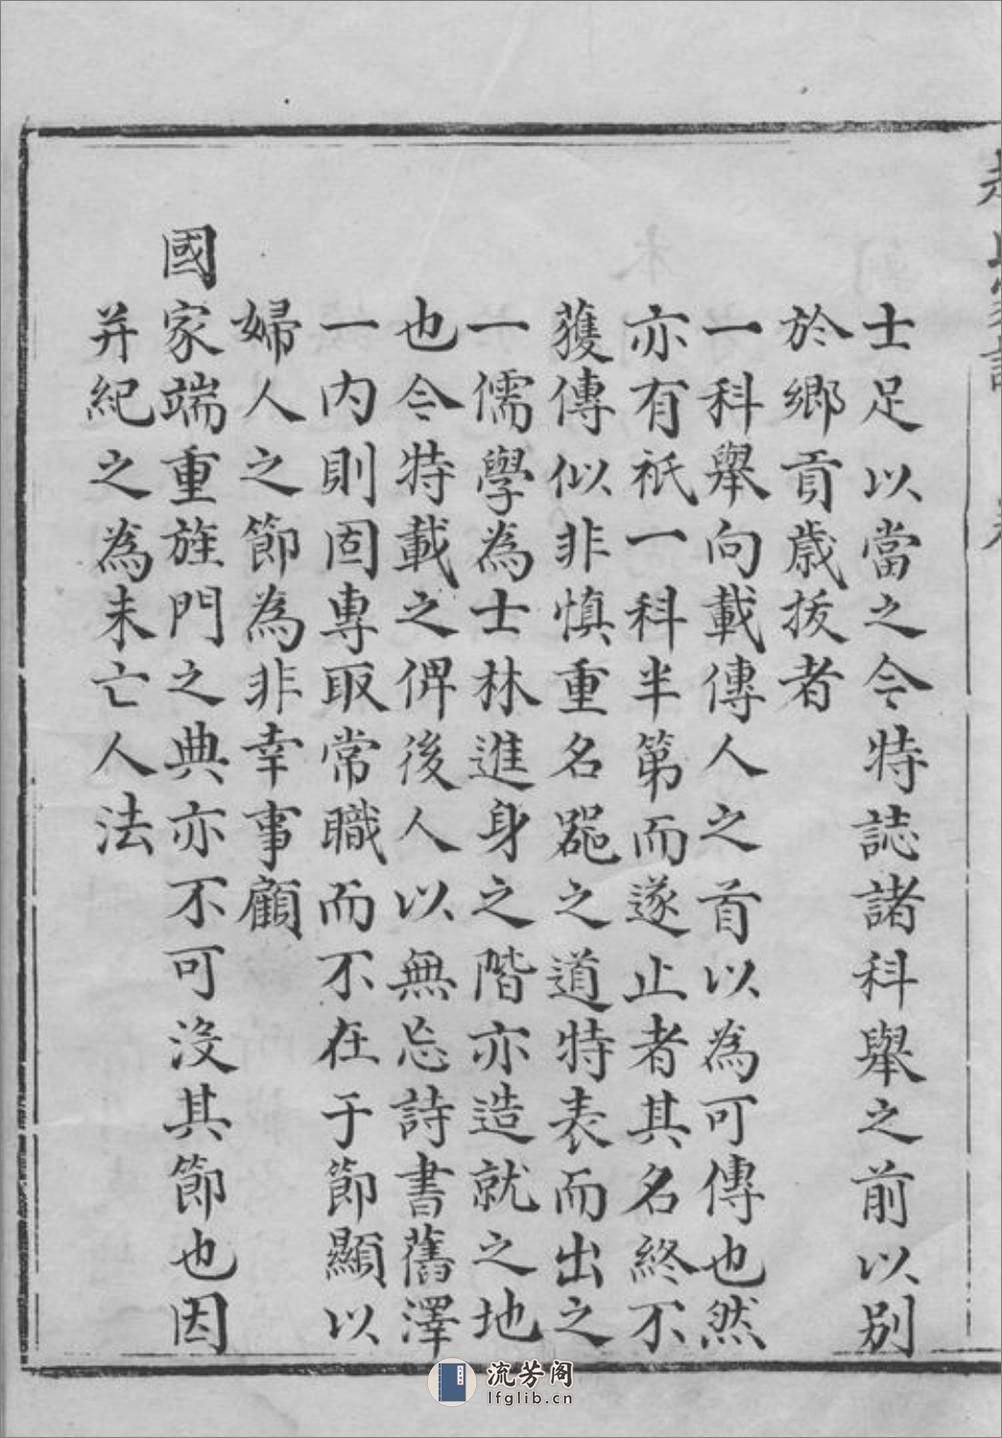 士足以當之今特誌諸科舉之前以別
於鄉貢歲拔者
一科舉向載傳人之首以為可傳也然
亦有祇一科半第而遂止者其名終不
獲傳似非慎重名器之道特表而出之
一儒學為士林進身之階亦造就之地
也今特載之俾後人以無忘詩書舊澤
一內則固專取常職而不在于節顯以
婦人之節為非幸事顧
國家端重旌門之典亦不可沒其節也因
并紀之為未亡人法
流芳阁
lfglib.cn